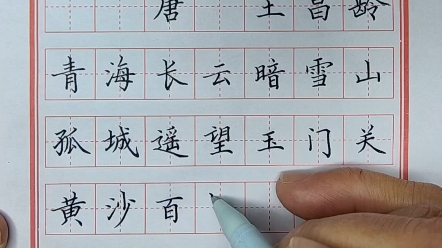 唐 王昌龄
青海长云暗雪山
孤城遥望玉门关
黄沙百